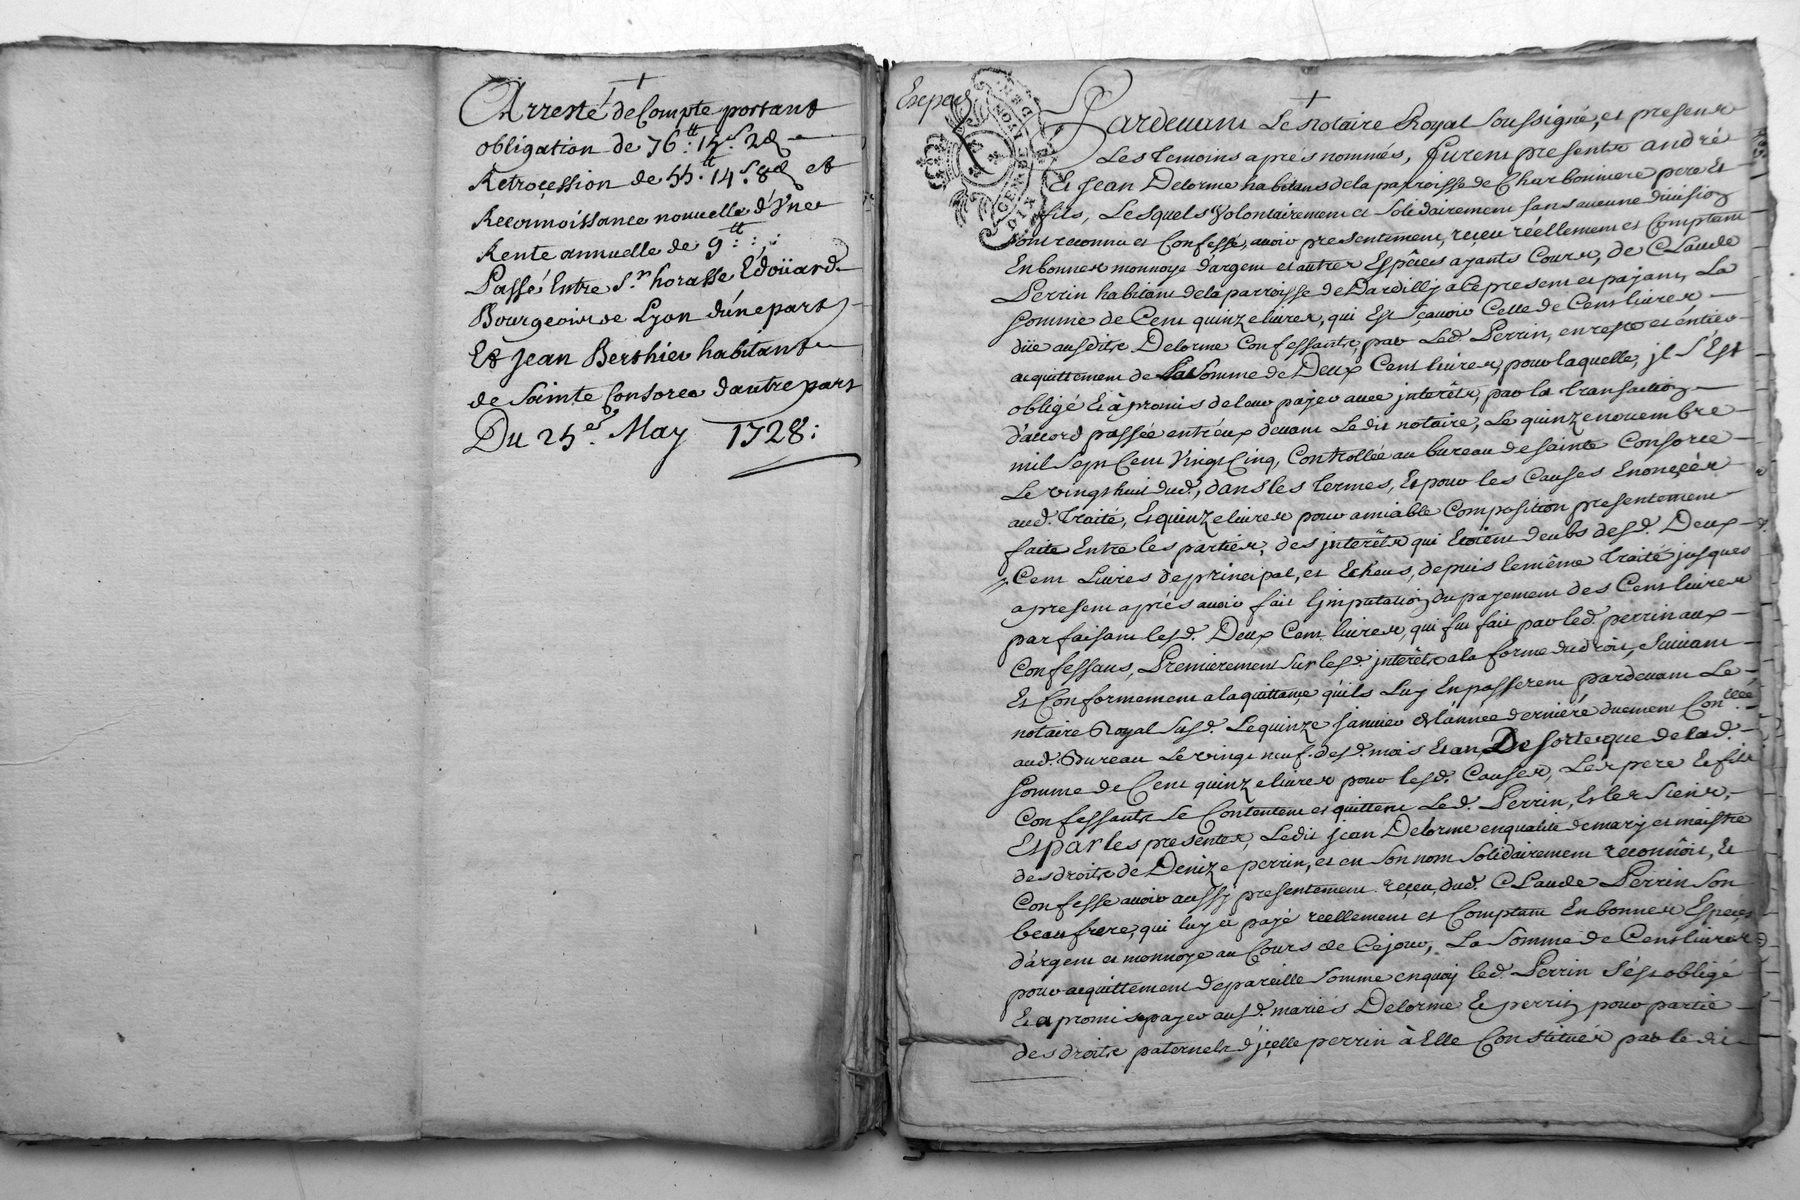 Arresté de Compte portant
obligation de 76.tt 15.s 2d
Retrocession de 55.tt 14.s 8d et
Reconnoissance nouvelle d'Une
Rente annuelle de 9tt
Passé Entre S.r horasse Edoüard
Bourgeois de Lyon d'une part
Et Jean Berthier habitant
de Sainte Consorce d'autre part
Du 25.e May 1728:
Exped
GEN. DE LION
DIX DEN
Pardevant Le Notaire Royal Soussigné, et present
Les Temoins aprés nommés, furent presents andré
Et Jean Delorme habitans de la parroisse de Charbonniere pere Et
fils, Lesquels Volontairement et Solidairement sans aucune division
ont reconnu et Confessé, avoir presentement, reçeu réellement et Comptant
En bonnes monnoye d'argent et autres Espéces ayants Cours, de Claude
Perrin habitant de la parroisse de Dardilly a Ce present et payant, La
somme de Cent quinze livres, qui Est sçavoir Celle de Cent livres
düe ausdits Delorme Confessants, par Led. Perrin, en reste et éntier
acquittement de La Somme de Deux Cent livres pour laquelle, jl S'Est
obligé Et à promis de leur payer avec jnterêts, par la Transaction
d'accord passée entr'eux devant Ledit notaire, Le quinze novembre
mil Sept Cent Vingt Cinq, Controllée au bureau de Sainte Consorce
Le vingt huit dud., dans les Termes, Et pour les Causes Enonçées
aud. Traité, Et quinze livres pour amiable Composition presentement
faite Entre les parties, des jnterêts qui Etoient deubs desd. Deux
Cent Livres de principal, et Echeus, depuis le même Traité jusques
a present aprés avoir fait L'jmputation du payement des Cent livres
parfaisant lesd. Deux Cent livres, qui fut fait par led. perrin aux
Confessans, Premierement sur lesd. jnterêts a la forme du droit, Suivant
Et Conformement a la quittance, qu'ils Luy En passerent pardevant Le
notaire Royal Susd. Le quinze Janvier de l'année derniere duement Con.llée
aud. Bureau Le vingt neuf. desd. mois et an, De sorte que de lad.
somme de Cent quinze livres pour lesd. Causes, Les pere Et fils
Confessants Se Contentent et quittent Led. Perrin, Et les Siens,
Et par les presentes, Ledit jean Delorme en qualité de mary et maistre
des droits de Denize perrin, et en Son nom Solidairement reconnoit, Et
Confesse avoir aussy presentement reçeu, dud. Claude Perrin Son
beau frere, qui luy a payé reellement et Comptant En bonnes Especes
d'argent et monnoye au Cours de Cejour, La Somme de Cent livres
pour acquittement de pareille Somme en quoy led. Perrin s'ést obligé
Et a promis payer ausd. mariés Delorme Et perrin pour partie
des droits paternels d'jcelle perrin à Elle Constitués par le dit